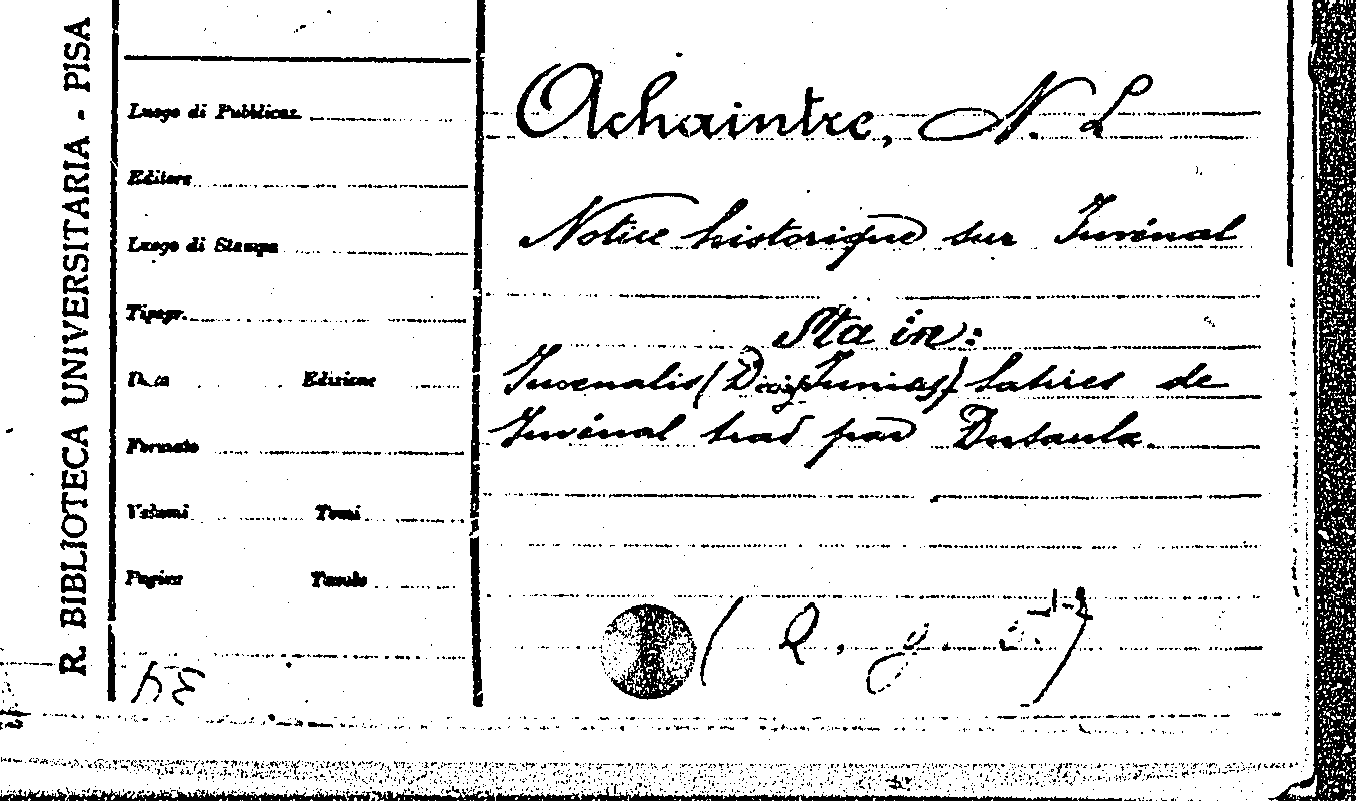 R. BIBLIOTECA UNIVERSITARIA - PISA
Luogo di Pubblicaz.
Editore
Luogo di Stampa
Tipogr.
Data Edizione
Formato
Volumi Tomi
Pagine Tavole
Achaintre, N. L
Notice historique sur Juvénal
Sta in:
Juvenalis (Junius) Satires de
Juvénal trad par Dusaulx.